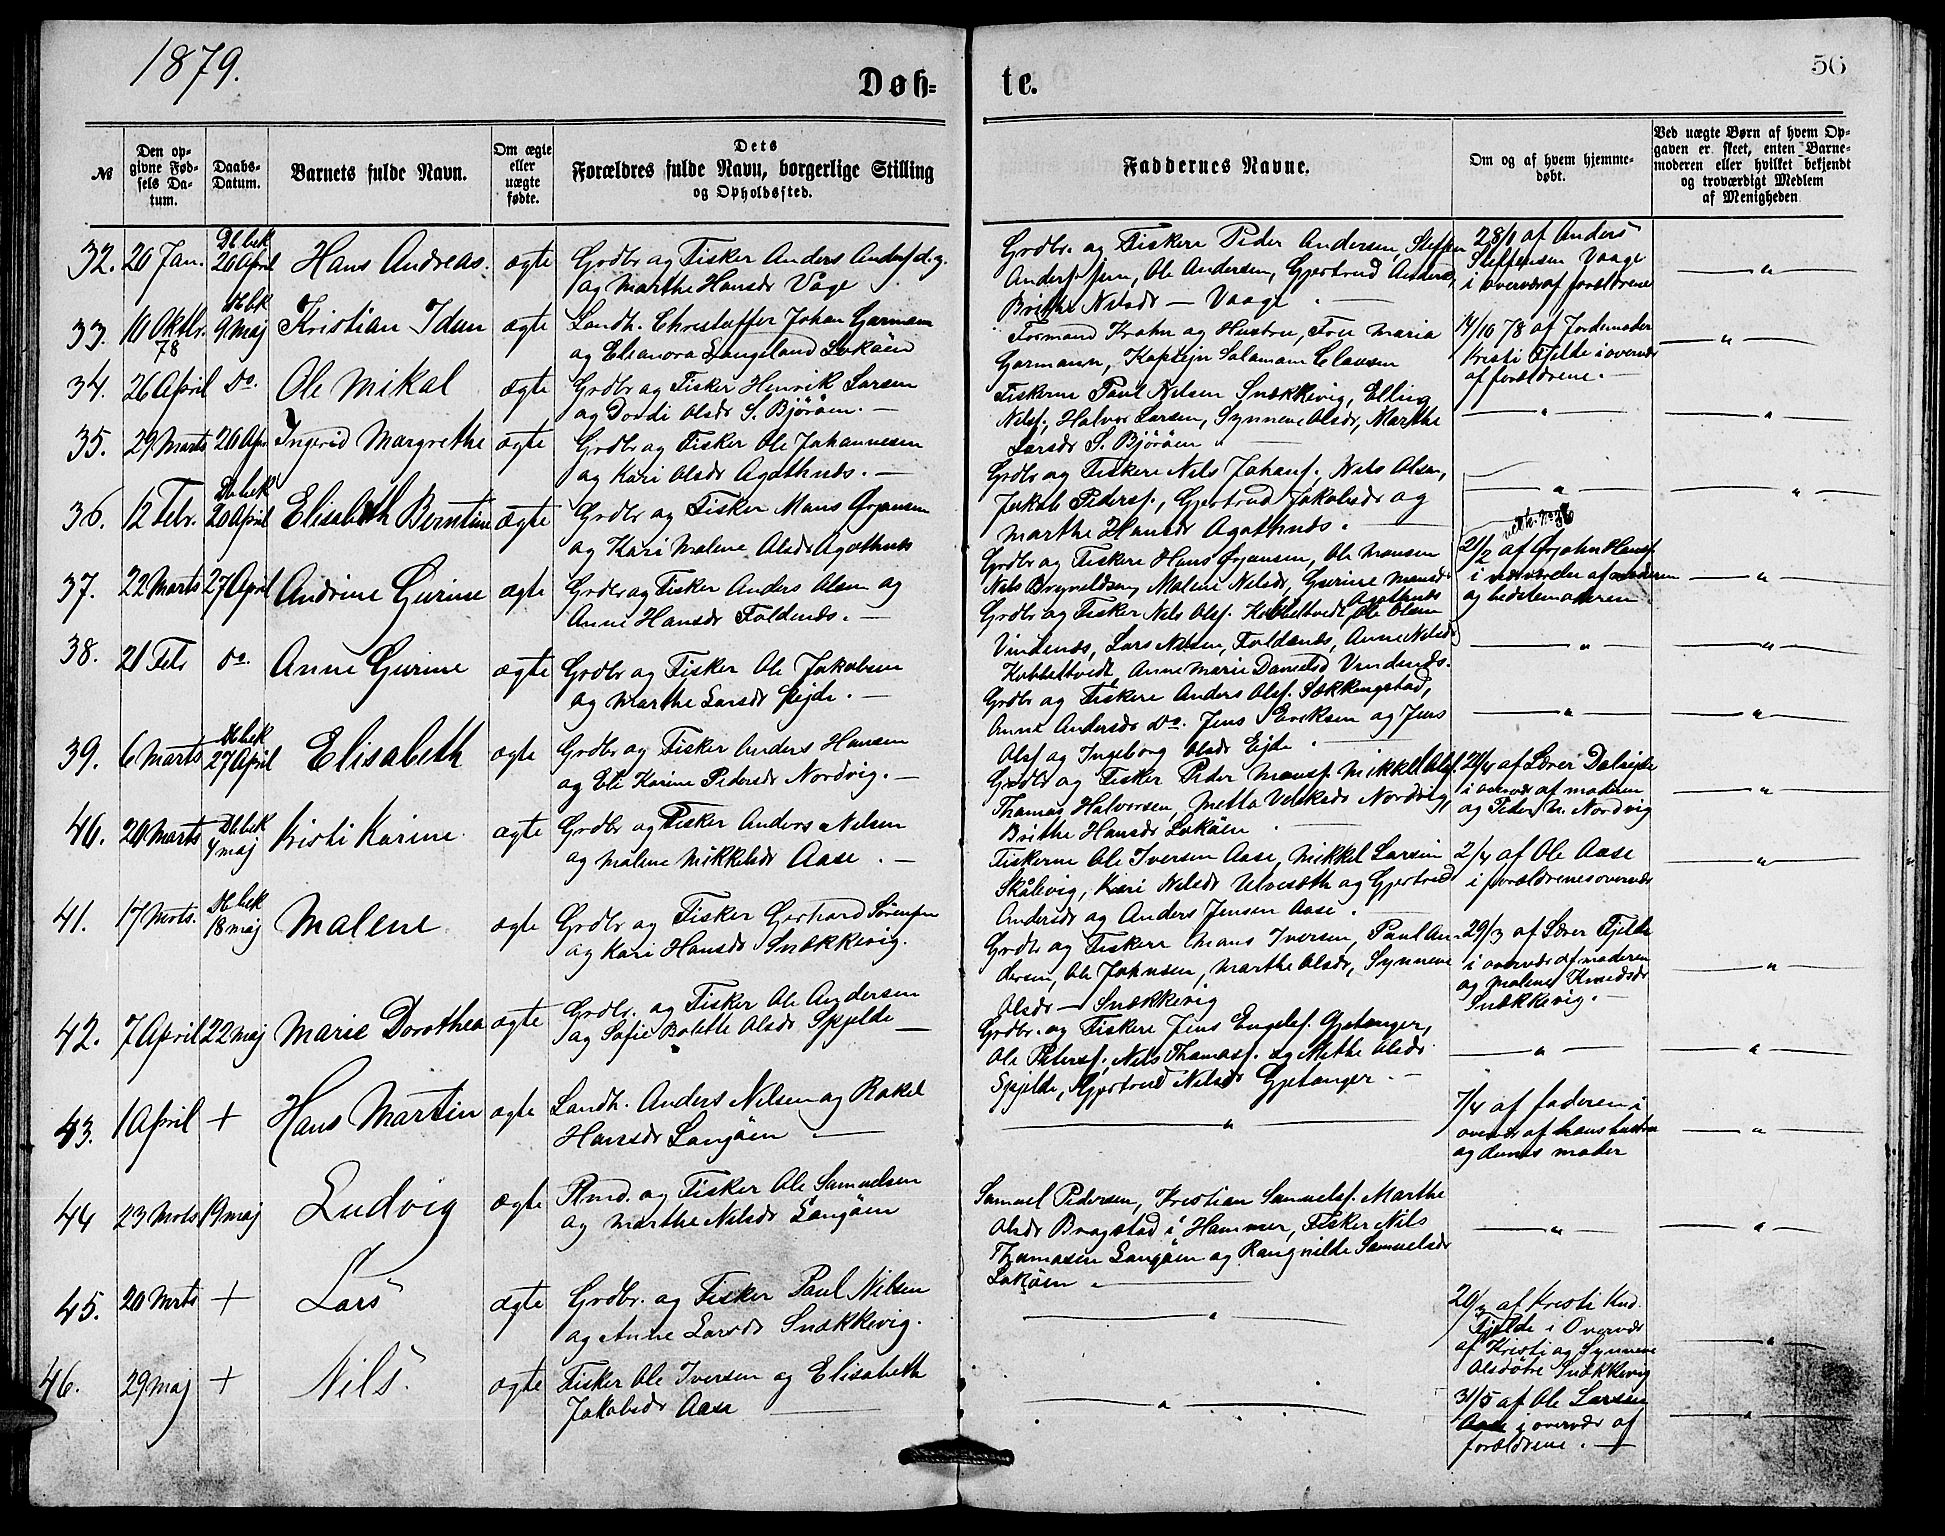 1879.
Døb-
te.
56
№
Den op-
givne Fød-
sels Da-
tum.
Daabs-
Datum.
Barnets fulde Navn.
Om ægte
eller
uægte
fødte.
Dets
Forældres fulde Navn, borgerlige Stilling
og Opholdssted.
Faddernes Navne.
Om og af hvem hjemme-
døbt.
Ved uægte Børn af hvem Op-
gaven er skeet, enten Barne-
moderen eller hvilket bekjendt
og troværdigt Medlem
af Menigheden
32. 20 Jan. Db bek 20 April Hans Andreas. ægte
Grdbr og Fisker Anders Andersf. d. y.
og Marthe Hansdr Vage
Grdbr. og Fiskere Peder Andersen, Steffen
Andersen, Ole Andersen, Gjertrud Andersdr,
Brithe Nilsdr — Vaage
28/1 af Anders
Steffensen Vaage
i overvær af forældrene
33. 10 Oktbr. 78 Db bek 9 Maj Kristian Idan ægte
Landh. Christoffer Johan Garmann
og Elianora Langeland Lokøen
Formand Krohn og Hustru, Fru Maria
Garmann, Kaptejn Salamam Clausen
14/10 78 af Jordemoder
Kristi Fjelde i overvær
af forældrene.
34. 26 April Do. Ole Mikal ægte
Grdbr og Fisker Henrik Larsen
og Dordi Olsdr S. Bjørøen. —
Fiskerne Paul Nilsen Snækkevig, Elling
Nilsf., Halvor Larsen, Synneve Olsdr, Marthe
Larsdr S. Bjørøen
35. 29 Marts 20 Apr Ingerid Margrethe ægte
Grdbr og Fisker Ole Johannesen
og Kari Olsdr Agothnes. —
Grdbr og Fiskere Nils Johansf., Nils Olsen,
Jakob Pedersf., Gjertrud Jakobsdr og
Marthe Hansdr Agothnes.
36. 12 Febr. Db bek 20 April Elisabeth Berntine ægte
Grdbr og Fisker Mons Ørjansen
og Kari Malene Olsdr Agothnes
Grdbr og Fiskere Hans Ørjansen, Ole Monsen
Nils Brynildsen, Malene Nilsdr, Gurine Monsdr
Agothnes
vedk. No 36
21/2 af Ørjahn Hansf.
i nærværelse af moderen
og bedstemoderen
37. 22 Marts 27 April Andrine Gurine ægte
Grdbr og Fisker Anders Olsen og
Anne Hansdr Foldenes. —
Grdbr og Fisker Nils Olsf. Kobbeltvedt, Ole Olsen
Vindenes, Lars Nilsen, Foldenæs, Anne Nilsdr
Kobbeltvedt, Anne Marie Danielsd Vindenæs.
38. 21 Febr do. Anne Gurine ægte
Grdbr og Fisker Ole Jakobsen
og Marthe Larsdr Ejde. —
Grdbr og Fiskere Anders Olsf. Sækkingstad,
Anne Andersdr Do. Jens Eriksen og Jens
Olsf og Ingeborg Olsdr Ejde
39. 6 Marts Db bek 27 April Elisabeth ægte
Grdbr og Fisker Anders Hansen
og Eli Karine Pedersdr Nordvig. —
Grdbr og Fisker Peder Monsf. Mikkel Olsf.
Thomas Halvorsen, Metta Nordvig,
Brithe Hansdr Lokøen
21/4 af Lærer Dalseide
i overvær af moderen
og Peder M. Nordvig
40. 20 Marts Db bek 4 maj Kristi Karine ægte
Grdbr og Fisker Anders Nilsen
og Malene Mikkelsdr Aase. —
Fiskerne Ole Iversen Aase, Mikkel Larsen
Skålevig, Kari Nilsdr Ulvesæth og Gjertrud
Andersdr og Anders Jensen Aase.
2/4 af Ole Aase
i forældrenes overvær
41. 17 Mrts. Db bek 18 maj Malene ægte
Grdbr og Fisker Gerhard Sørensen
og Kari Hansdr Snækkevig.
Grdbr og Fiskere Mons Iversen, Paul An-
dersen, Ole Johnsen, Marthe Olsdr, Synneve
Olsdr — Snækkevig
29/3 af Lærer Fjelde
i overvær af moderen
og Malene Knudsdr
Snækkevig. —
42. 7 April 22 maj Marie Dorothea ægte
Grdbr. og Fisker Ole Andersen
og Sofie Bolette Olsdr Spjelde —
Grdbr. og Fiskere Jens Engelsf. Gjetanger,
Ole Petersf., Nils Thomasf. og Methe Olsdr
Spjelde, Gjertrud Nilsdr Gjetanger. —
43. 1 April + Hans Martin ægte
Landh. Anders Nilsen og Rakel
Hansdr Langøen
7/4 af faderen i
overvær af hans hustru
og dennes moder
44 23 Mrts. 19 maj Ludvig ægte
Pmd. og Fisker Ole Samuelsen
og Marthe Nilsdr Langøen
Samuel Pedersen, Kristian Samuelsf. Marthe
Olsdr Brogstad i Hammer, Fisker Nils
Thomasen Langøen og Rangnilde Samuelsdr
Lokøen
45. 20 Mrts + Lars ægte
Grdbr. og Fisker Paul Nilsen
og Anne Larsdr Snækkevig.
20/3 af Kristi Knd.
Fjelde i Overvær
af Kristi og Synneve
Olsdøtre Snækkevig
46. 29 maj + Nils. ægte
Fisker Ole Iversen og Elisabeth
Jakobsdr Aase
31/5 af Ole Larssen
Aase i overvær af
forældrene. —